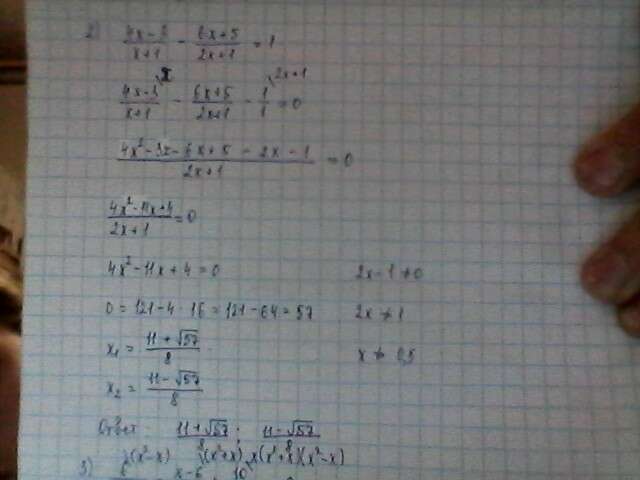 2) (4x-3)/(x+1) - (6x+5)/(2x+1) = 1
(4x-3)/(x+1) \x - (6x+5)/(2x+1) - 1/1 \2x+1 = 0
(4x²-3x-6x+5-2x-1)/(2x+1) = 0
(4x²-11x+4)/(2x+1) = 0
4x²-11x+4=0 2x-1≠0
D=121-4·16=121-64=57 2x≠1
x₁ = (11+√57)/8 x≠0,5
x₂ = (11-√57)/8
Ответ (11+√57)/8; (11-√57)/8
(x²-x) (x²+x) x(x²+x)(x²-x)
3) 6 x-6 10